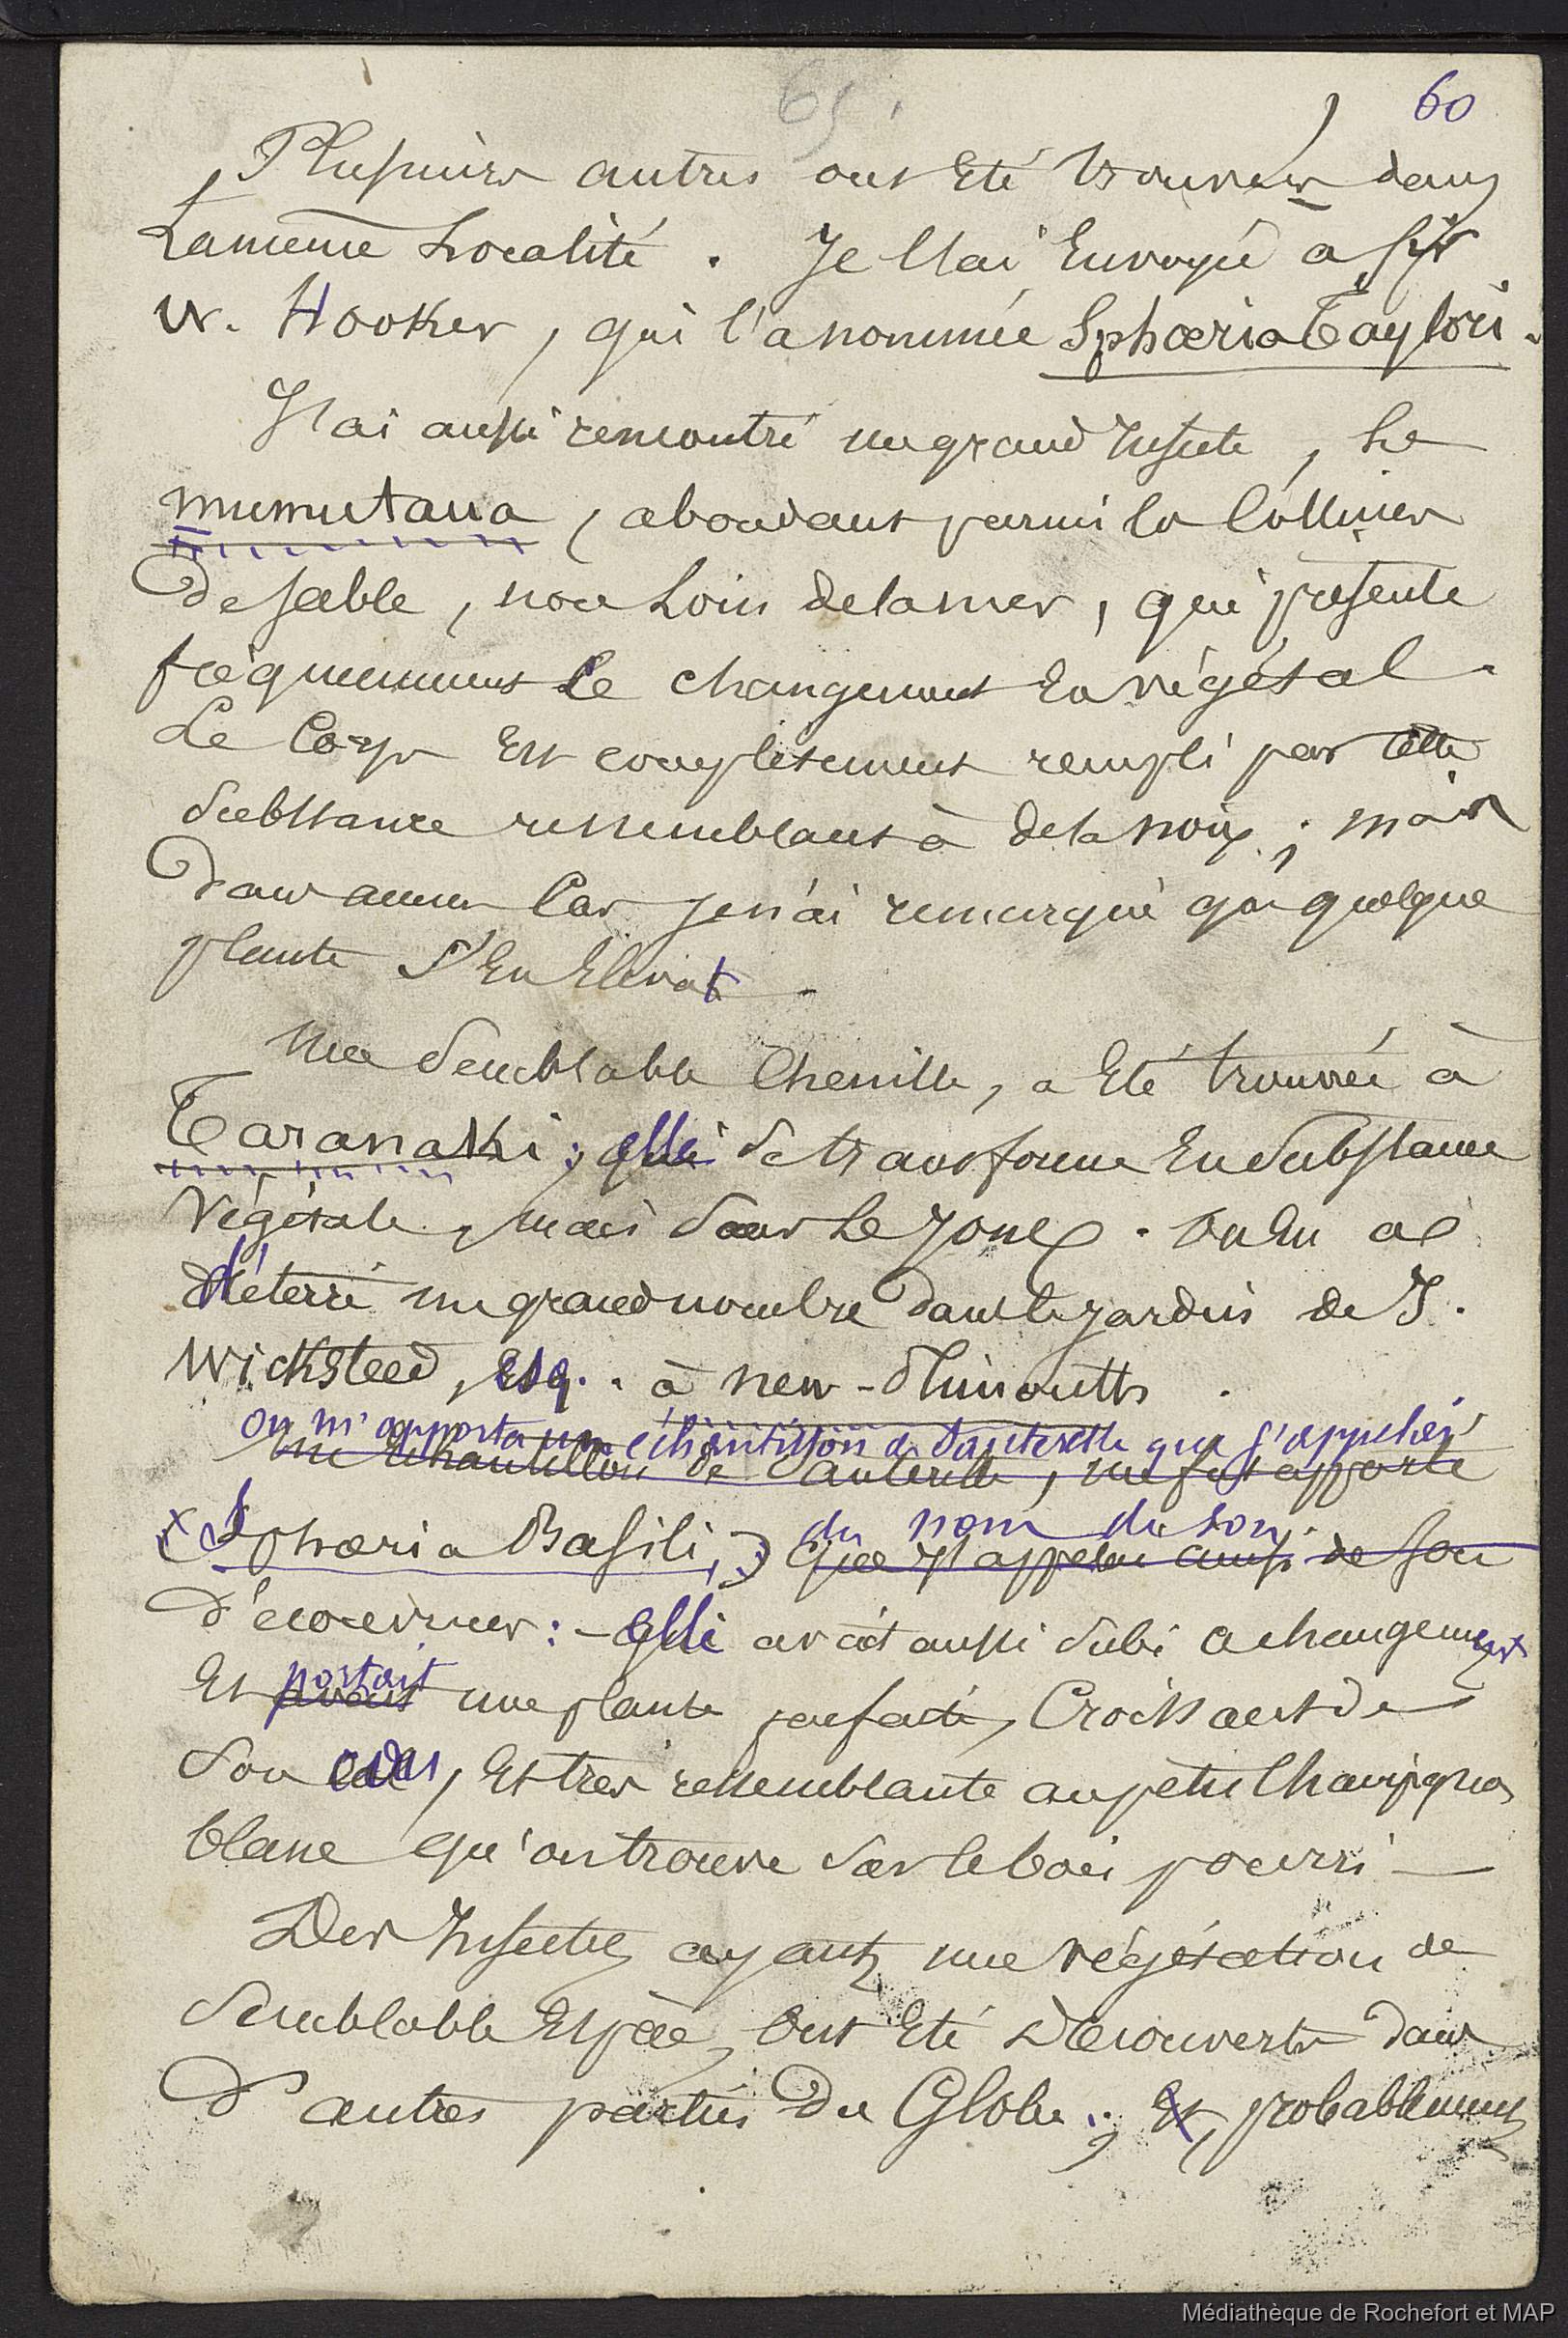 65.
60
Plusieurs autres ont Eté trouvées dans
La même Localité. Je l'ai Envoyée a Sir
W. Hooker, qui l'a nommée Sphœria Taylori.
J'ai aussi rencontré un grand Insecte, Le
mumutaua, abondant parmi les Collines
de sable, non Loin de la mer, qui présente
fréquemment Le changement En végétal.
Le Corps Est complètement rempli par Cette
Substance ressemblant à de la noix; mais
Dans aucun Cas je n'ai remarqué que quelque
plante S'En Elevat.
Une Semblable Chenille, a Eté trouvée à
Taranaki; Elle Se transforme En Substance
Végétale, mais Sans Le Jonc. On En a
déterré un grand nombre Dans le jardin de J.
Wicksteed, Esq. à New-Plimouth.
on m'apporta un échantillon de Sauterelle que j'appelai
Un Echantillon de Sauterelle, me fut apporté
(Sphœria Basili,) du nom de son
Que J'appelai ainsi de Son
Découvreur: - Elle avait aussi Subi ce changement
Et portait une plante parfaite, Croissant de
Son dos, Et très ressemblante au petit Champignon
blanc qu'on trouve Sur le bois pourri —
Des Insectes ayant une végétation de
Semblable Espèce, Ont Eté Découverts dans
D'autres parties Du Globe; Et, probablement
Médiathèque de Rochefort et MAP